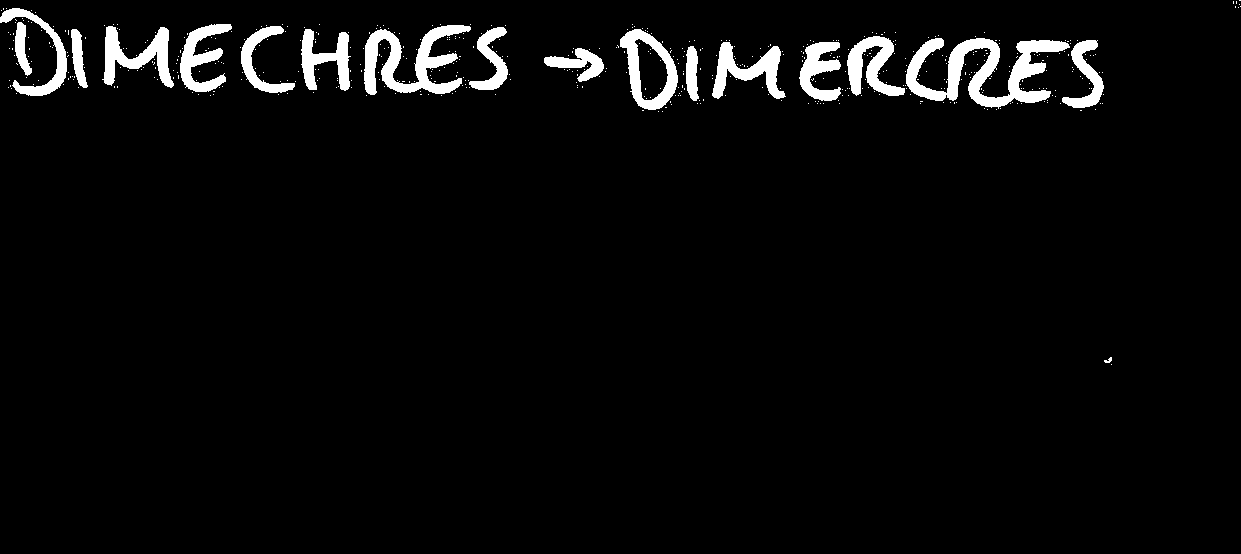 DIMECHRES → DIMERCRES